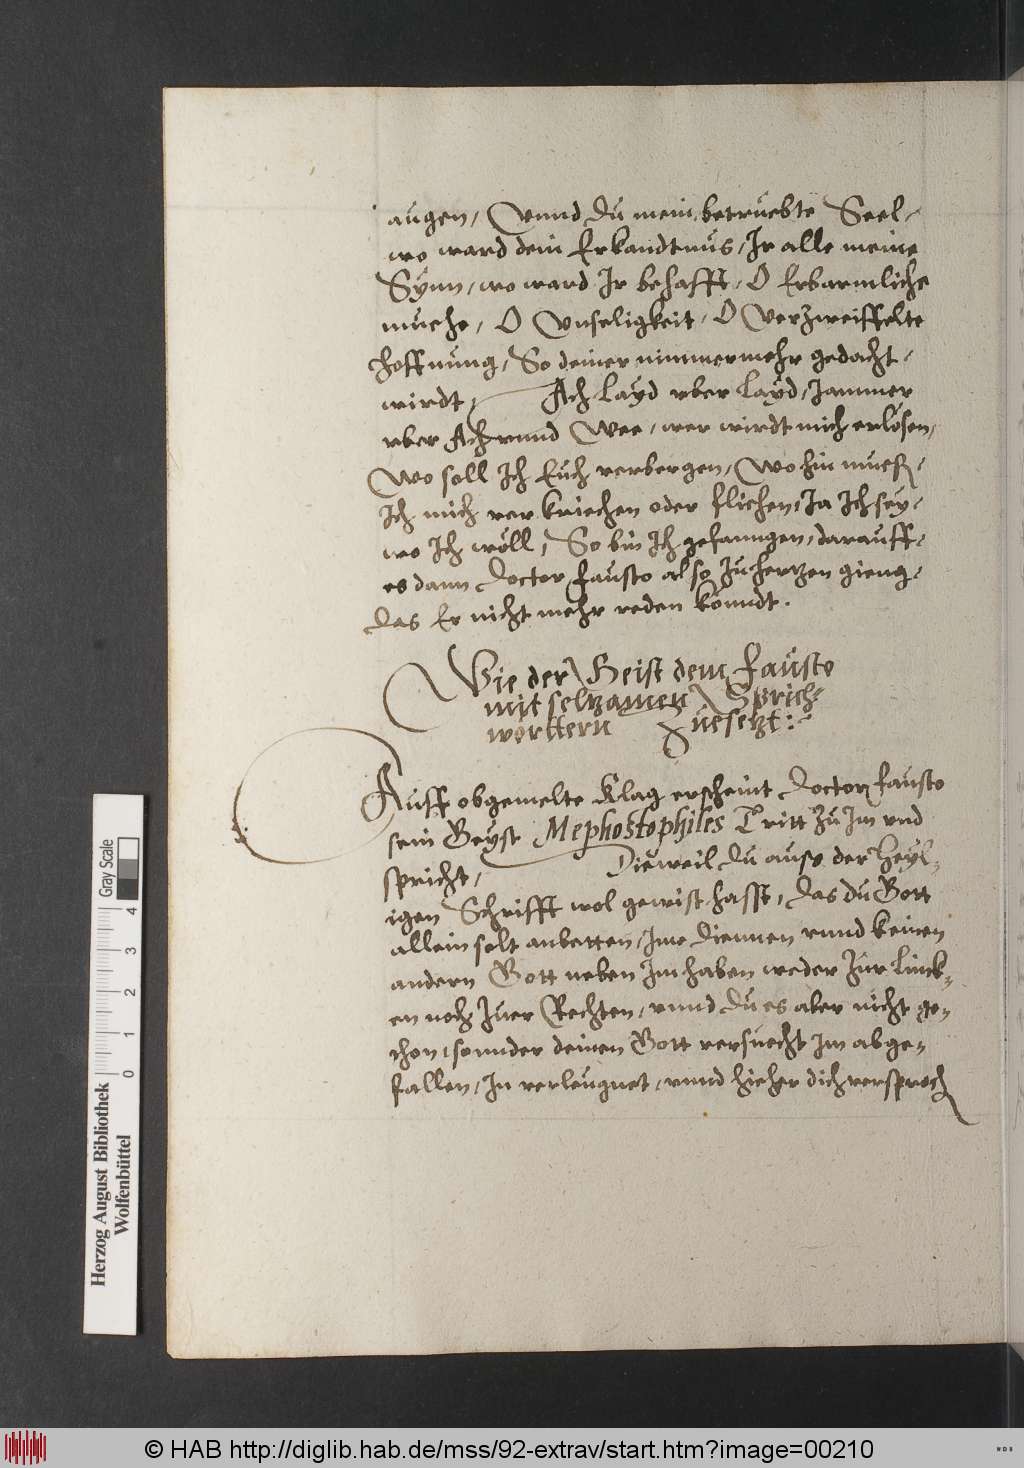 augen, Vnnd du mein betruebte Seel,
wo ward dein Erkandtnus, Ir alle meine
Synn, wo ward Ir behafft, O Erbarmliche
muehe, O Vnseligkeit, O Verzweiffelte
hoffnung, So deiner nimmermehr gedacht,
wirdt, Ach Layd vber Layd, Jammer
vber Ach vnnd Wee, wer wirdt mich erlosen,
Wo soll Ich Euch verbergen, Wo hin mueß,
Ich mich verkriechen oder fliehen, Ja Ich sey,
wo Ich wöll, So bin Ich gefanngen, darauff,
es dann Doctor Fausto also zu hertzen gieng,
Das Er nicht mehr reden könndt.
Wie der Geist dem Fausto
mit seltzamen Sprich-
wörttern Zuesetzt:
Auff obgemelte Klag erscheint Doctor Fausto
sein Geyst Mephostophiles Tritt Zu Im vnd
spricht, Dieweil du auss der Heyl-
igen Schrifft wol gewist hasst, das du Gott
allein solt anbetten, Ime diennen vnnd keinen
andern Gott neben Im haben weder Zur Linck-
en noch Zuer Rechten, vnnd du es aber nicht ge-
thon, sonnder deinen Gott versuecht Im abge-
fallen, In verleugnet, vnnd hieher dich versproch
Herzog August Bibliothek
Wolfenbüttel
Gray Scale
0 1 2 3 4
© HAB http://diglib.hab.de/mss/92-extrav/start.htm?image=00210